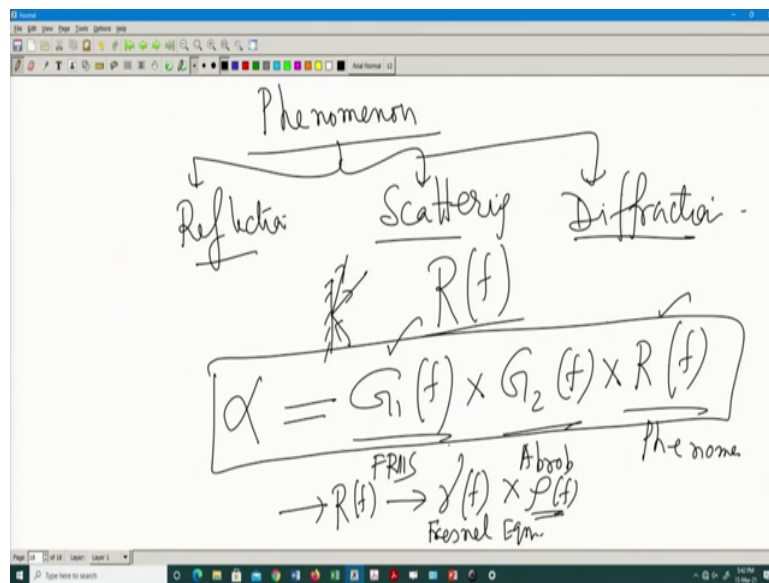 Journal
File Edit View Page Tools Options Help
Arial Normal 12
Phenomenon
Reflection Scattering Diffraction
R(f)
α = G₁(f) × G₂(f) × R(f)
Absob Phenome
→ R(f) → γ(f) × ρ(f)
Fresnel Eqn.
Page 18 of 18 Layer: Layer 1
Type here to search
5:42 PM